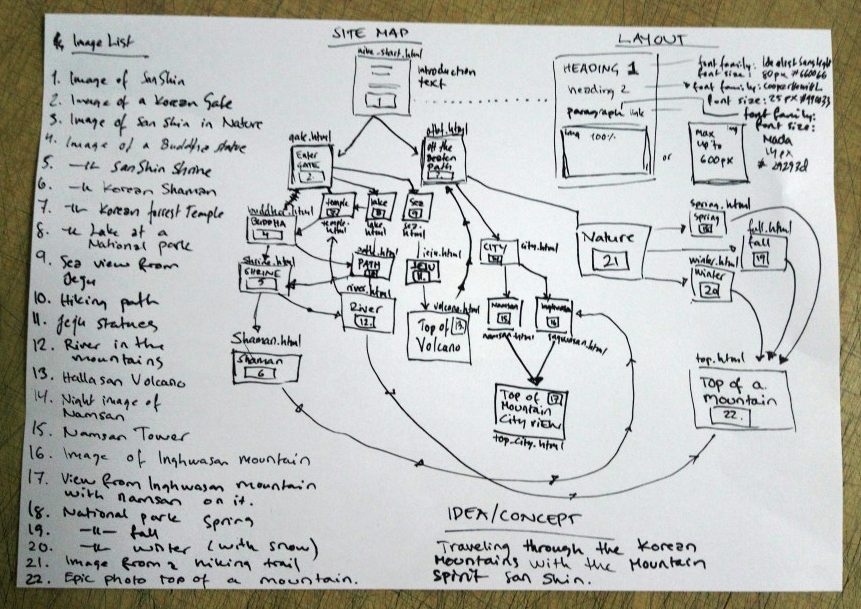 Image List
1. Image of SanShin
2. Image of a Korean Gate
3. Image of San Shin in Nature
4. Image of a Buddha statue
5. -〃- SanShin Shrine
6. -〃- Korean Shaman
7. -〃- Korean forrest Temple
8. -〃- Lake at a
National park
9. Sea view from
Jeju
10. Hiking path
11. Jeju statues
12. River in the
mountains
13. Hallasan Volcano
14. Night image of
Namsan
15. Namsan Tower
16. Image of Inghwasan mountain
17. View from Inghwasan mountain
with namsan on it.
18. National park Spring
19. -〃- fall
20. -〃- winter (with snow)
21. Image from a hiking trail
22. Epic photo top of a mountain.
SITE MAP
1
introduction
text
gate.html
Enter
GATE
2
off the
Broken
Path
buddha.html
BUDDHA
4
temple
temple.html
lake
8
lake.html
Sea
9
sea.html
PATH
shrine.html
SHRINE
5
river.html
River
12.
JEJU
11.
volcano.html
Top of 13
Volcano
Shaman.html
Shaman
6
CITY
city.html
Namsan
15
namsan.html
Inghwasan
16
Inghwasan.html
Top of 17
Mountain
City view
top_city.html
Nature
21
spring.html
spring
18
fall.html
fall
19
winter.html
winter
20
top.html
Top of a
mountain
22.
LAYOUT
HEADING 1
heading 2
paragraph link
img 100%
or
img
max
up to
600px
font family:
font size: 80px #660066
font family:
font size: 25px
font family:
font size:
Nada
14px
IDEA/CONCEPT
Traveling through the Korean
Mountains with the Mountain
spirit San Shin.